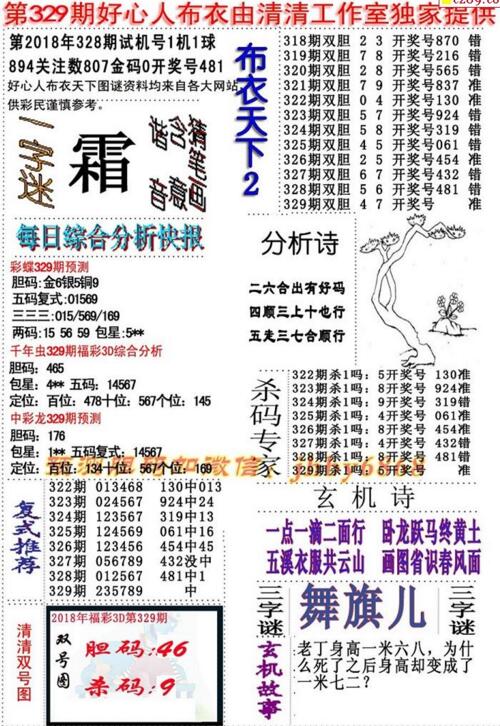 第329期好心人布衣由清清工作室独家提供
第2018年328期试机号1机1球
894关注数807金码0开奖号481
好心人布衣天下图谜资料均来自各大网站
供彩民谨慎参考。
一字迷
霜
猜笔画
含意
谐音
每日综合分析快报
彩蝶329期预测
胆码:金6银5铜9
五码复式:01569
三三三:015/569/169
两码:15 56 59 包星:5**
千年虫329期福彩3D综合分析
胆码:465
包星:4** 五码:14567
定位:百位:478十位:567个位:145
中彩龙329期预测
胆码:176
包星:1** 五码复式:14567
定位:百位:134十位:567个位:169
复式推荐
322期 013468 130中013
323期 024567 924中24
324期 123567 319中319
325期 124569 061中16
326期 123456 454中45
327期 056789 432没中
328期 012567 481中1
329期 235789 中
清清双号图
2018年福彩3D第329期
双号图
胆码:46
杀码:9
布衣天下2
318期双胆 2 3 开奖号870 错
319期双胆 7 8 开奖号216 错
320期双胆 2 8 开奖号565 错
321期双胆 7 9 开奖号837 准
322期双胆 0 4 开奖号130 准
323期双胆 5 7 开奖号924 错
324期双胆 5 8 开奖号319 错
325期双胆 4 5 开奖号061 错
326期双胆 2 5 开奖号454 准
327期双胆 6 7 开奖号432 错
328期双胆 5 6 开奖号481 错
329期双胆 4 7 开奖号 准
分析诗
二六合出有好码
四顺三上十也行
五走三七合顺行
杀码专家
322期杀1吗:5开奖号 130准
323期杀1吗:8开奖号 924准
324期杀1吗:9开奖号 319错
325期杀1吗:4开奖号 061准
326期杀1吗:4开奖号 454错
327期杀1吗:4开奖号 432错
328期杀1吗:8开奖号 481错
329期杀1吗:5开奖号 准
玄机诗
一点一滴二面行 卧龙跃马终黄土
五溪衣服共云山 画图省识春风面
三字谜
舞旗儿
三字谜
玄机故事
老丁身高一米六八,为什
么死了之后身高却变成了
一米七二?